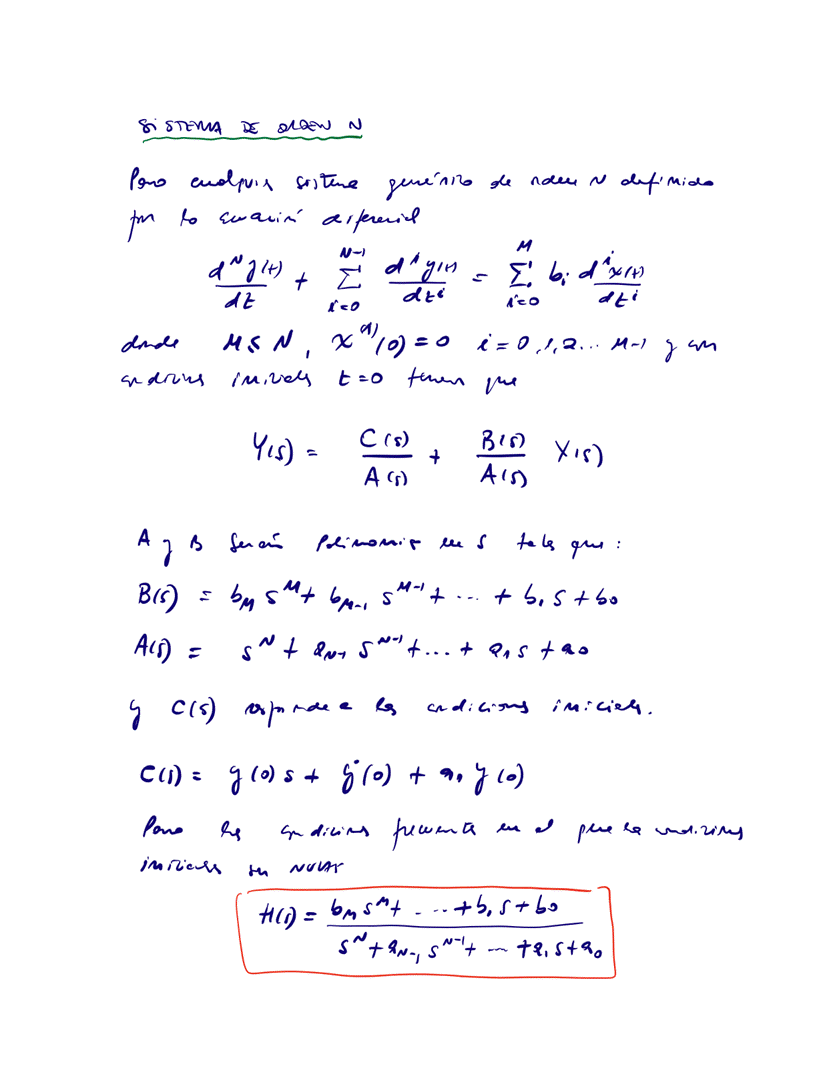 SISTEMA DE ORDEN N
Para cualquier sistema genérico de orden N definido
por la ecuación diferencial
d^N y(t)/dt + Σ_{i=0}^{N-1} d^i y(t)/dt^i = Σ_{i=0}^{M} b_i d^i x(t)/dt^i
donde M ≤ N, x^(i)(0) = 0 i = 0,1,2... M-1 y con
condiciones iniciales t=0 tenemos que
Y(s) = C(s)/A(s) + B(s)/A(s) X(s)
A y B serán polinomios en s tales que:
B(s) = b_M s^M + b_{M-1} s^{M-1} + ... + b_1 s + b_0
A(s) = s^N + a_{N-1} s^{N-1} + ... + a_1 s + a_0
y C(s) responde a las condiciones iniciales.
C(s) = y(0) s + ẏ(0) + a_1 y(0)
Para las condiciones frecuente en el que las condiciones
iniciales son nulas
H(s) = (b_M s^M + ... + b_1 s + b_0)/(s^N + a_{N-1} s^{N-1} + ... + a_1 s + a_0)